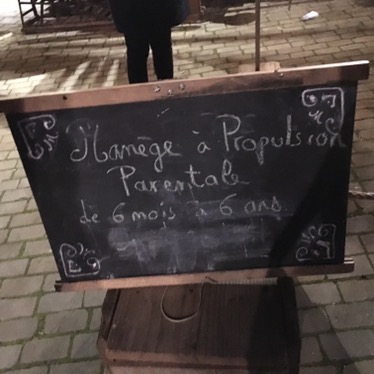 Manège à Propulsion
Parentale
de 6 mois à 6 ans